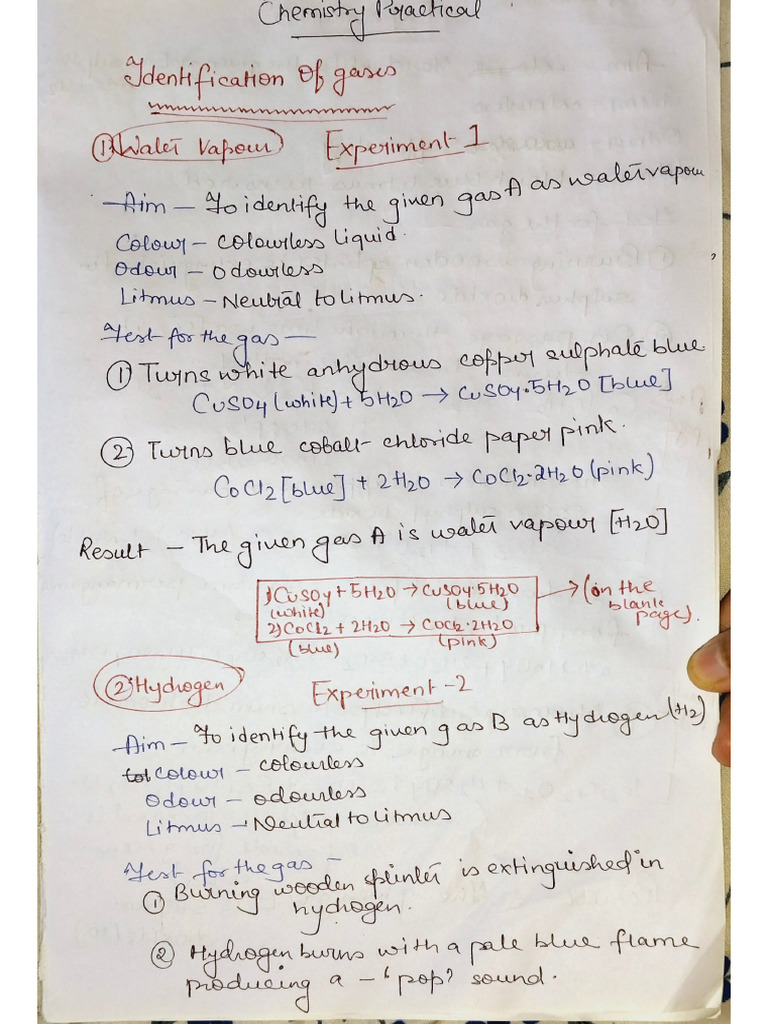 Chemistry Practical
Identification of gases
① Water Vapour Experiment-1
Aim – To identify the given gas A as water vapour
Colour – Colourless liquid.
Odour – Odourless
Litmus – Neutral to litmus.
Test for the gas –
① Turns white anhydrous copper sulphate blue
CuSO4 (white) + 5H2O → CuSO4·5H2O [blue]
② Turns blue cobalt chloride paper pink.
CoCl2 [blue] + 2H2O → CoCl2·2H2O (pink)
Result – The given gas A is water vapour [H2O]
1) CuSO4 + 5H2O → CuSO4·5H2O → (on the
(white) (blue) blank
2) CoCl2 + 2H2O → CoCl2·2H2O page).
(blue) (pink)
② Hydrogen Experiment-2
Aim – To identify the given gas B as Hydrogen (H2)
Colour – colourless
Odour – odourless
Litmus → Neutral to litmus
Test for the gas –
① Burning wooden splinter is extinguished in
hydrogen.
② Hydrogen burns with a pale blue flame
producing a – 'pop' sound.